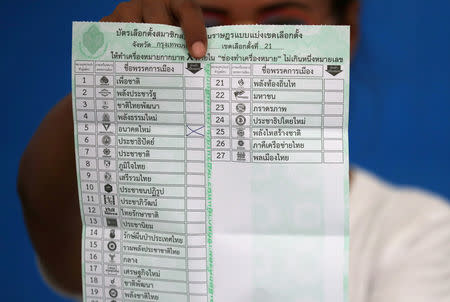 บัตรเลือกตั้งสมาชิก นราษฎรแบบแบ่งเขตเลือกตั้ง
จังหวัด กรุงเทพ เขตเลือกตั้งที่ 21
ให้ทำเครื่องหมายกากบาท X ใน "ช่องทำเครื่องหมาย" ไม่เกินหนึ่งหมายเลข
ชื่อพรรคการเมือง
1 เพื่อชาติ
2 พลังประชารัฐ
3 ชาติไทยพัฒนา
4 พลังธรรมใหม่
5 อนาคตใหม่
6 ประชาธิปัตย์
7 ประชาชาติ
8 ภูมิใจไทย
9 เสรีรวมไทย
10 ประชาชนปฏิรูป
11 ประชาภิวัฒน์
12 ไทยรักษาชาติ
13 ประชานิยม
14 รักษ์ผืนป่าประเทศไทย
15 รวมพลังประชาชาติไทย
16 กลาง
17 เศรษฐกิจใหม่
18 ชาติพัฒนา
19
ชื่อพรรคการเมือง
21 พลังท้องถิ่นไท
22 มหาชน
23 ภราดรภาพ
24 ประชาธิปไตยใหม่
25 พลังไทยสร้างชาติ
26 ภาคีเครือข่ายไทย
27 พลเมืองไทย